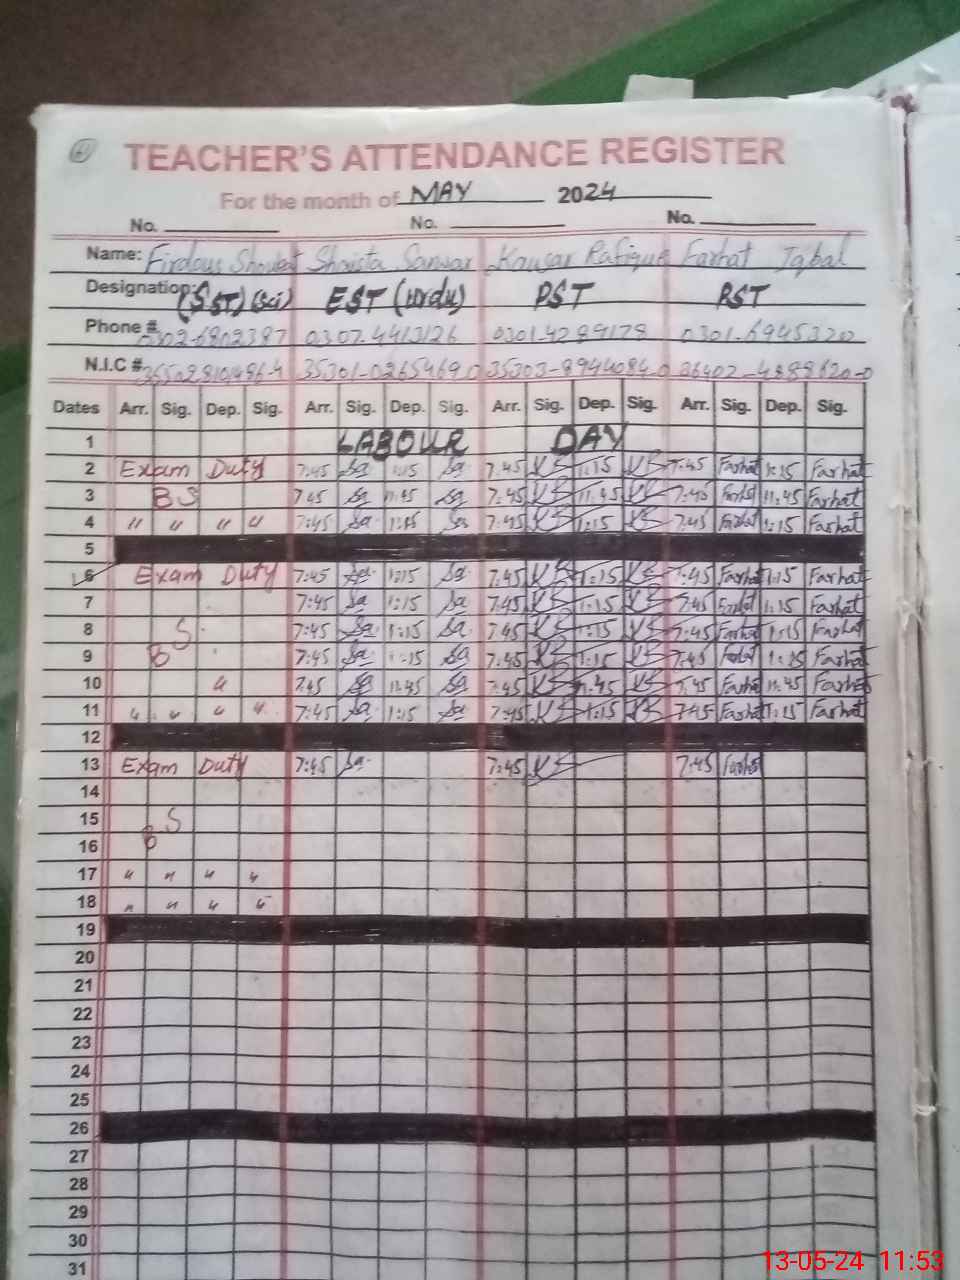 61
TEACHER'S ATTENDANCE REGISTER
For the month of MAY 2024
No. No. No.
Name: Firdous Shoukat Shaista Sarwar Kausar Rafique Farhat Iqbal
Designation: (SST)(Sci) EST (Urdu) PST PST
Phone #. 0302-6802397 0307-4413126 0301-4289178 0301-6945320
N.I.C #
Dates Arr. Sig. Dep. Sig. Arr. Sig. Dep. Sig. Arr. Sig. Dep. Sig. Arr. Sig. Dep. Sig.
1 LABOUR DAY
2 Exam Duty 7:45 Sa 1:15 Sa 7:45 KS 1:15 KS 7:45 Farhat 1:15 Farhat
3 BS 7:45 Sa 11:45 Sa 7:45 KS 11:45 KS 7:45 Farhat 11:45 Farhat
4 " " " " 7:45 Sa 1:15 Sa 7:45 KS 1:15 KS 7:45 Farhat 1:15 Farhat
5
6 Exam Duty 7:45 Sa 1:15 Sa 7:45 KS 1:15 KS 7:45 Farhat 1:15 Farhat
7 7:45 Sa 1:15 Sa 7:45 KS 1:15 KS 7:45 Farhat 1:15 Farhat
8 S 7:45 Sa 1:15 Sa 7:45 KS 1:15 KS 7:45 Farhat 1:15 Farhat
9 B 7:45 Sa 1:15 Sa 7:45 KS 1:15 KS 7:45 Farhat 1:15 Farhat
10 " 7:45 Sa 11:45 Sa 7:45 KS 11:45 KS 7:45 Farhat 11:45 Farhat
11 " " " " 7:45 Sa 1:15 Sa 7:45 KS 1:15 KS 7:45 Farhat 1:15 Farhat
12
13 Exam Duty 7:45 Sa 7:45 KS 7:45 Farhat
14
15 S
16 B
17 " " " "
18 " " " "
19
20
21
22
23
24
25
26
27
28
29
30
31
13-05-24 11:53